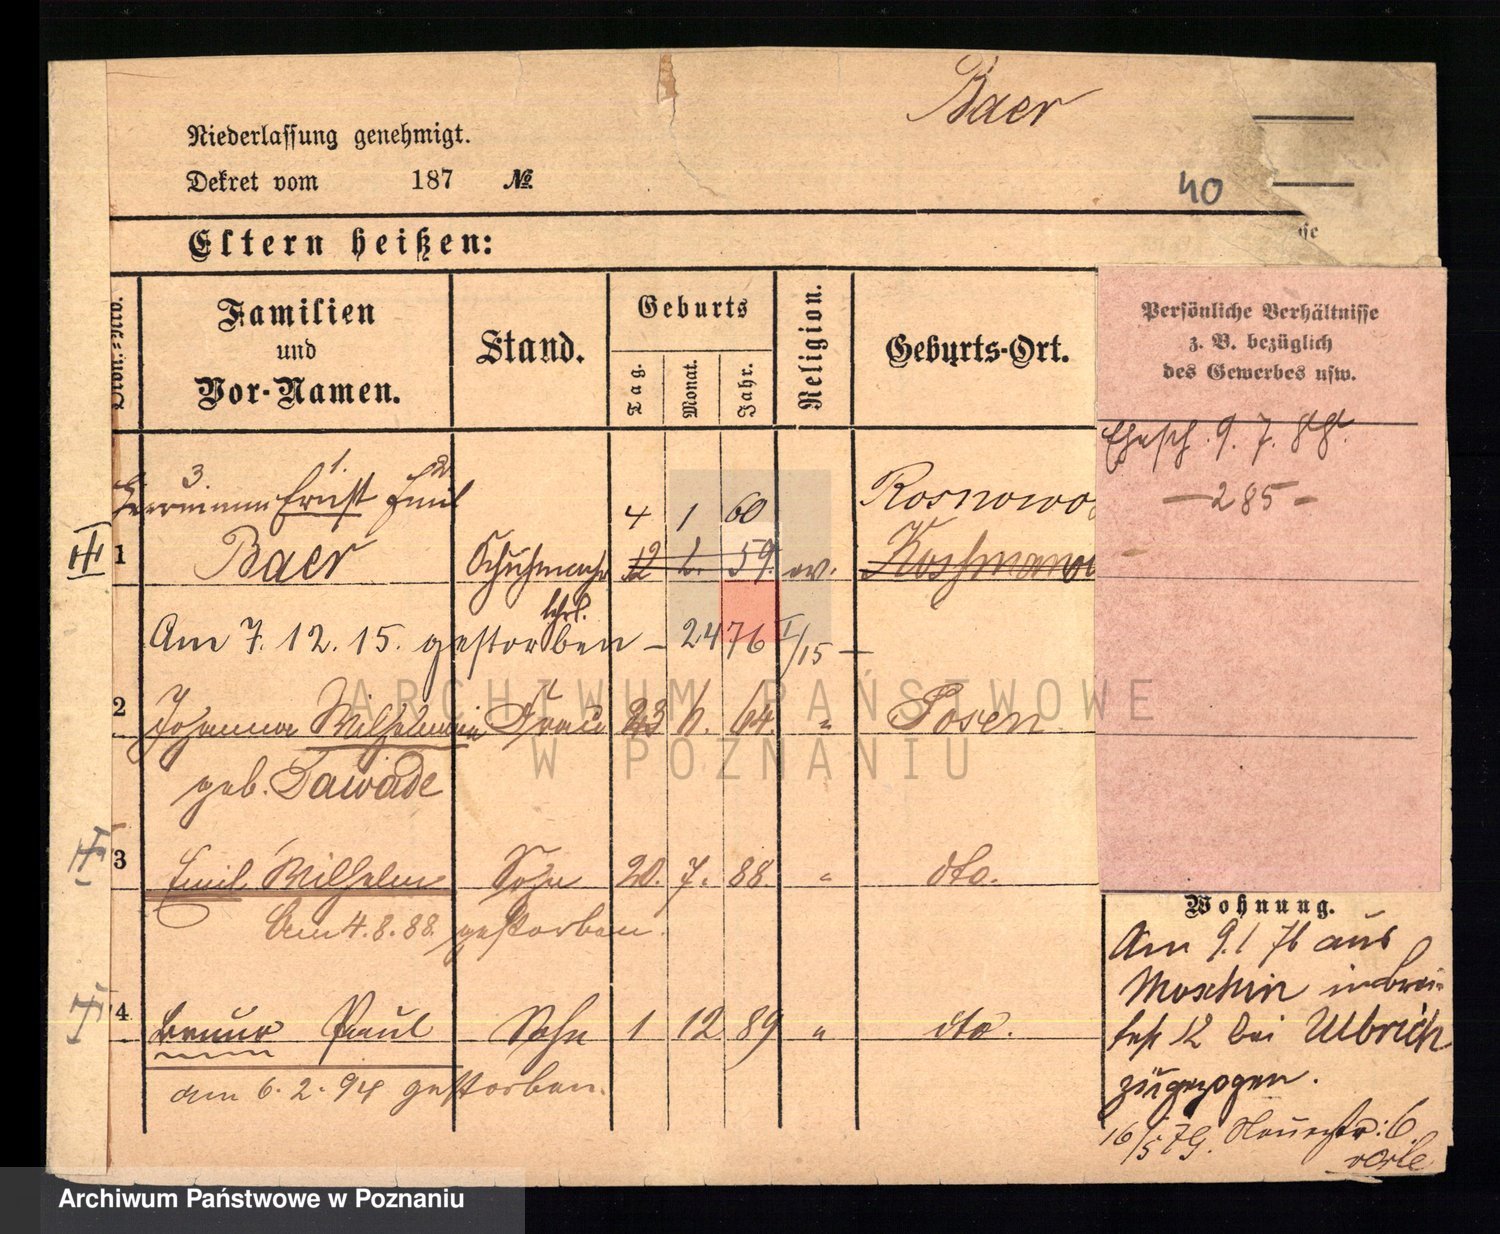 Baer
Niederlassung genehmigt.
Dekret vom 187 №
40
Eltern heißen:
Familien und Vor-Namen.
Stand.
Geburts
Tag.
Monat.
Jahr.
Religion.
Geburts-Ort.
Persönliche Verhältnisse
z. B. bezüglich
des Gewerbes usw.
Ehesch. 9. 7. 88.
— 285 —
3. 1. 2.
Herrmann Ernst Emil 4 1 60 Rosnowo
III 1 Baer Schuhmachr 12 59. ev.
lehrl.
Am 7. 12. 15. gestorben — 2476 I/15 —
2 Johanna Wilhelmine Frau 23 6. 64. " Posen.
geb. Tawade
3 Emil Wilhelm Sohn 20. 7. 88. " dto.
Am 4. 8. 88. gestorben.
4 Bruno Paul Sohn 1 12 89 " dto.
am 6. 2. 94 gestorben.
Wohnung.
Am 9. 1 76 aus
Moschin in Brei-
test 12 bei Ulbrich
zugezogen.
16/5 79. Neuestr: 6.
ARCHIWUM PAŃSTWOWE
W POZNANIU
Archiwum Państwowe w Poznaniu